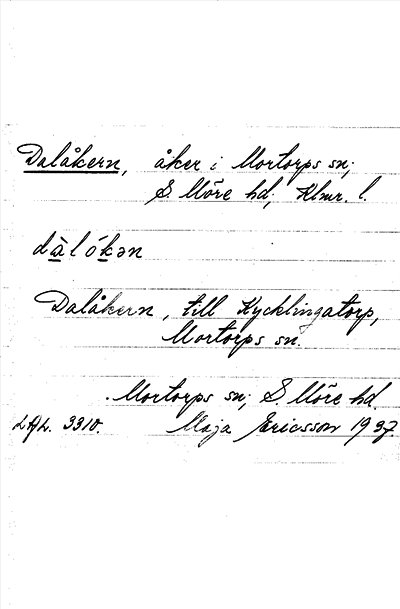 Dalåkern, åker i Mortorps sn;
S. Möre hd; Klmr. l.
dàlókən
Dalåkern, till Kycklingatorp,
Mortorps sn.
Mortorps sn; S. Möre hd.
LAL. 3310. Maja Ericsson 1937.